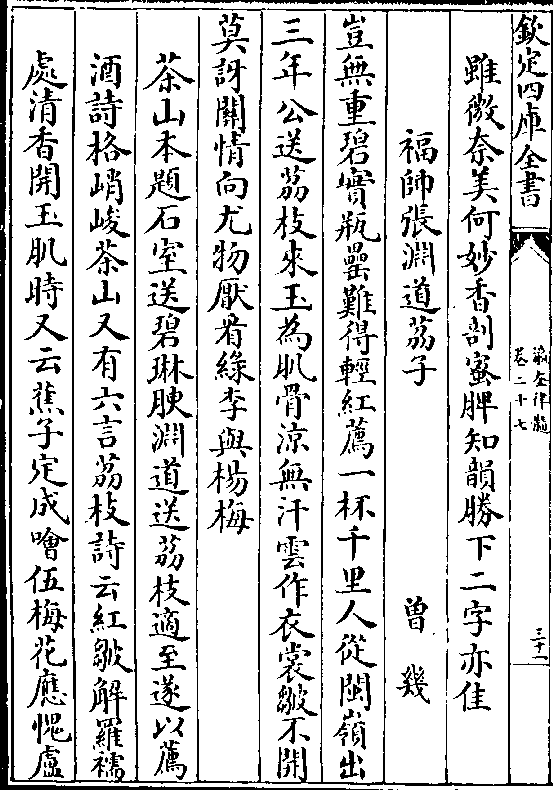 欽定四庫全書
瀛奎律髓
卷二十七
三十一
雖微奈美何妙香剖蜜脾知韻勝下二字亦佳
福帥張淵道荔子
曾幾
豈無重碧實瓶罍難得輕紅薦一杯千里人從閩嶺出
三年公送荔枝來玉為肌骨涼無汗雲作衣裳皺不開
莫訝關情向尤物厭看綠李與楊梅
茶山本題石室送碧琳腴淵道送荔枝適至遂以薦
酒詩格峭峻茶山又有六言荔枝詩云紅皺解羅襦
處清香開玉肌時又云蕉子定成噲伍梅花應愧盧